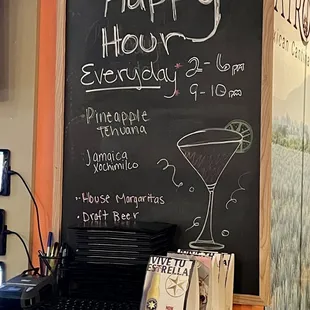 Happy
Hour
Everyday* 2-6pm
* 9-10pm
Pineapple
tehuana
Jamaica
xochimilco
-House Margaritas
•Draft Beer
VIVE TU
ESTRELLA